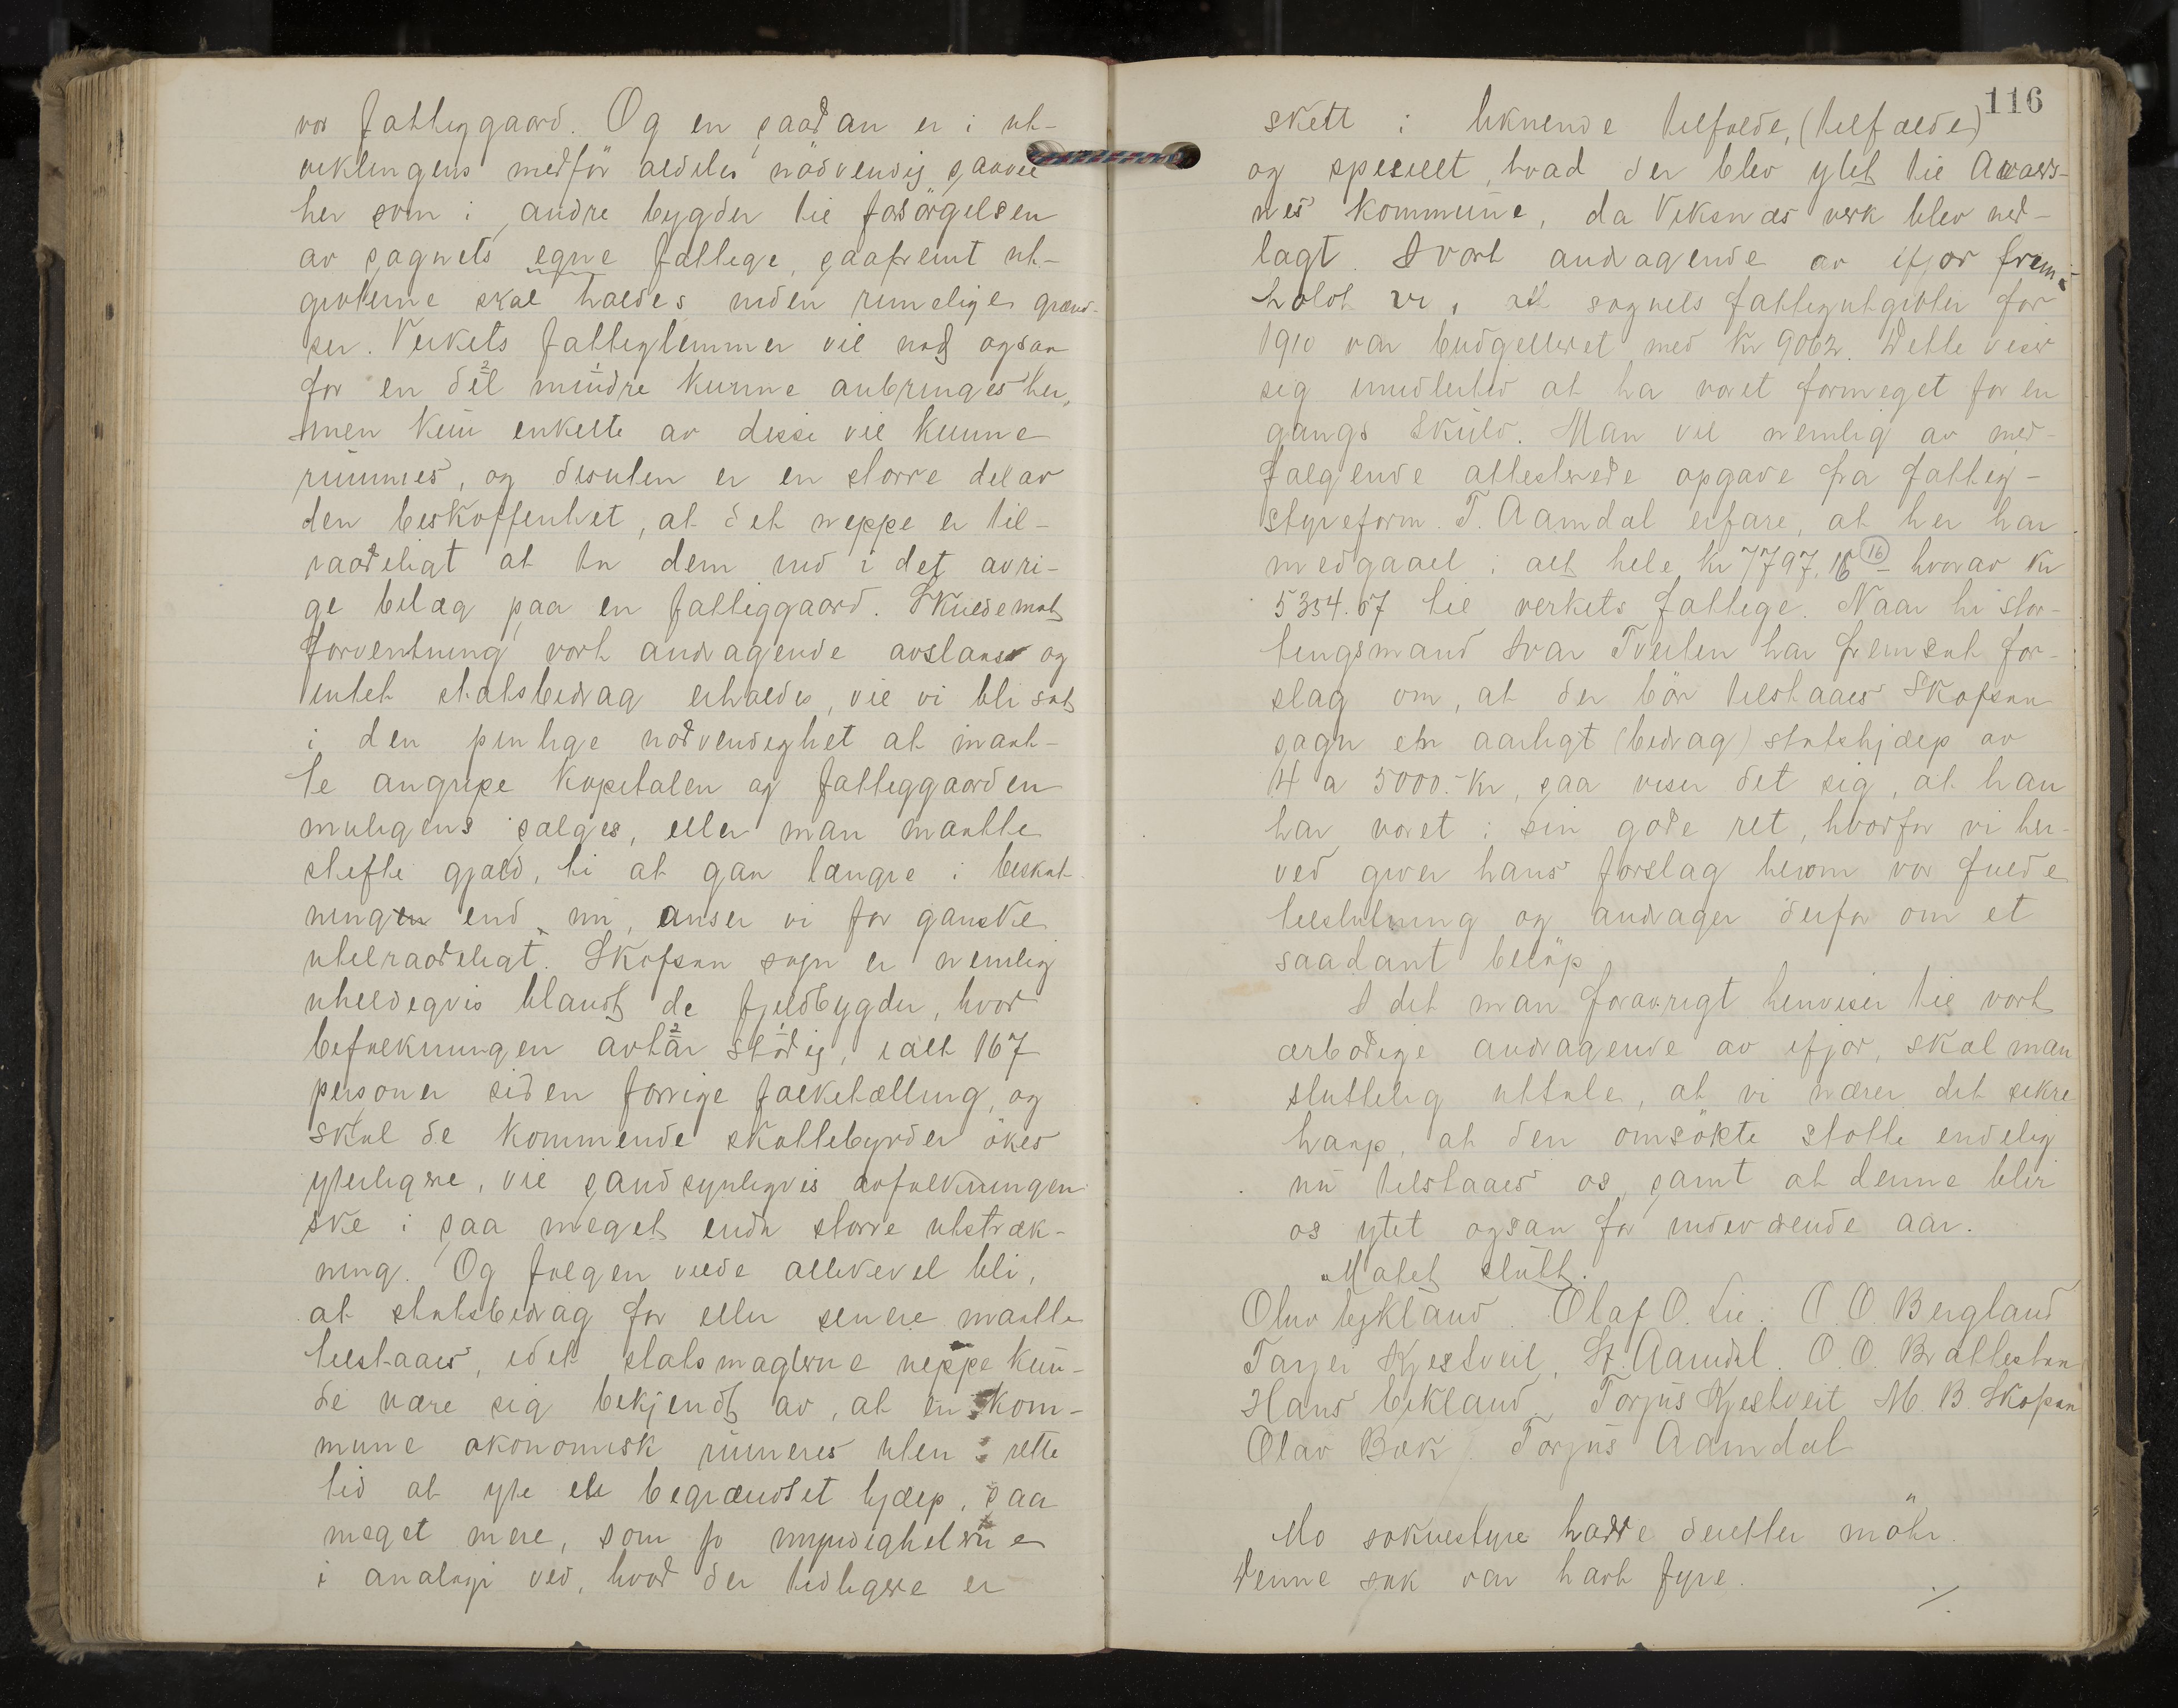 vor fattiggaard. Og en saadan er i ut-
viklingens medför aldeles nödvendig saavel
her som i andre bygder til forsörgelsen
av sognets egne fattige, saafremt ut-
gifterne skal holdes inden rimelige grænd-
ser. Verkets fattiglemmer vil nok ogsaa
for en del mindre kunne anbringes her,
men kun enkelte av disse vil kunne
rummes, og desuten er en storre del av
den beskaffenhet, at det neppe er til-
raadeligt at ta dem ind i det øvri-
ge belæg paa en fattiggaard. Skulde mot
forventning vort andragende avslaaes og
intet statsbidrag erholdes, vil vi bli sat
i den pinlige nødvendighet at maat-
te angripe kapitalen og fattiggaarden
muligens sælges, eller man maatte
stifte gjæld, ti at gaa længre i beskat-
ningen end nu, anser vi for ganske
utilraadeligt. Skafsaa sogn er nemlig
uheldigvis blandt de fjeldbygder, hvor
befolkningen avtar stödig, ialt 167
personer siden forrige folketælling, og
skal de kommende skattebyrder økes
yterligere, vil sandsynligvis avfolkningen
ske i saa meget enda storre utstræk-
ning. Og følgen vilde allikevel bli,
at statsbidrag før eller senere maatte
tilstaaes, idet statsmagterne neppe kun-
de være sig bekjendt av, at en kom-
mune økonomisk ruineres uten i rette
tid at yte en begrændset hjælp, saa
meget mere, som jo myndigheterne
i analogi ved, hvad der tidligere er
116
skett i liknende tilfælde, (tilfælde)
og specielt, hvad der blev ytet til Avalds-
nes kommune, da Viksnæs verk blev ned-
lagt. I vort andragende av ifjor frem-
holdt vi, at sognets fattigutgifter for
1910 var budgetteret med Kr 9062. Dette viser
sig imidlertid at ha været formeget for en
gangs skuld. Man vil nemlig av med-
følgende attesterede opgave fra fattig-
styreform. T. Aamdal erfare, at her har
medgaaet i alt hele kr 7797.16 16 – hvorav kr
5354.67 til verkets fattige. Naar hr stor-
tingsmand Ivar Tveiten har fremsat for-
slag om, at der bör tilstaaes Skafsaa
sogn en aarligt (bidrag) statshjælp av
4 a 5000.- kr, saa viser det sig, at han
har været i sin gode ret, hvorfor vi her-
ved giver hans forslag herom vor fulde
tilslutning og andrager derfor om et
saadant beløp.
I det man forøvrigt henviser til vort
ærbødige andragende av ifjor, skal man
sluttelig uttale, at vi nærer det sikre
haap, at den omsökte støtte endelig
nu tilstaaes os, samt at denne blir
os ytet ogsaa for indeværende aar.
Møtet slutt.
Olav Eikland. Olaf O. Lie. O. O. Bergland
Tarjei Kjestveit, St. Aamdal. O. O. Brattestaa
Hans Eikland. Torjus Kjestveit M. B. Skafsaa
Olav Bæk Torjus Aamdal
Mo soknestyre hadde deretter möte.
Denne sak var havt fyre.
./.